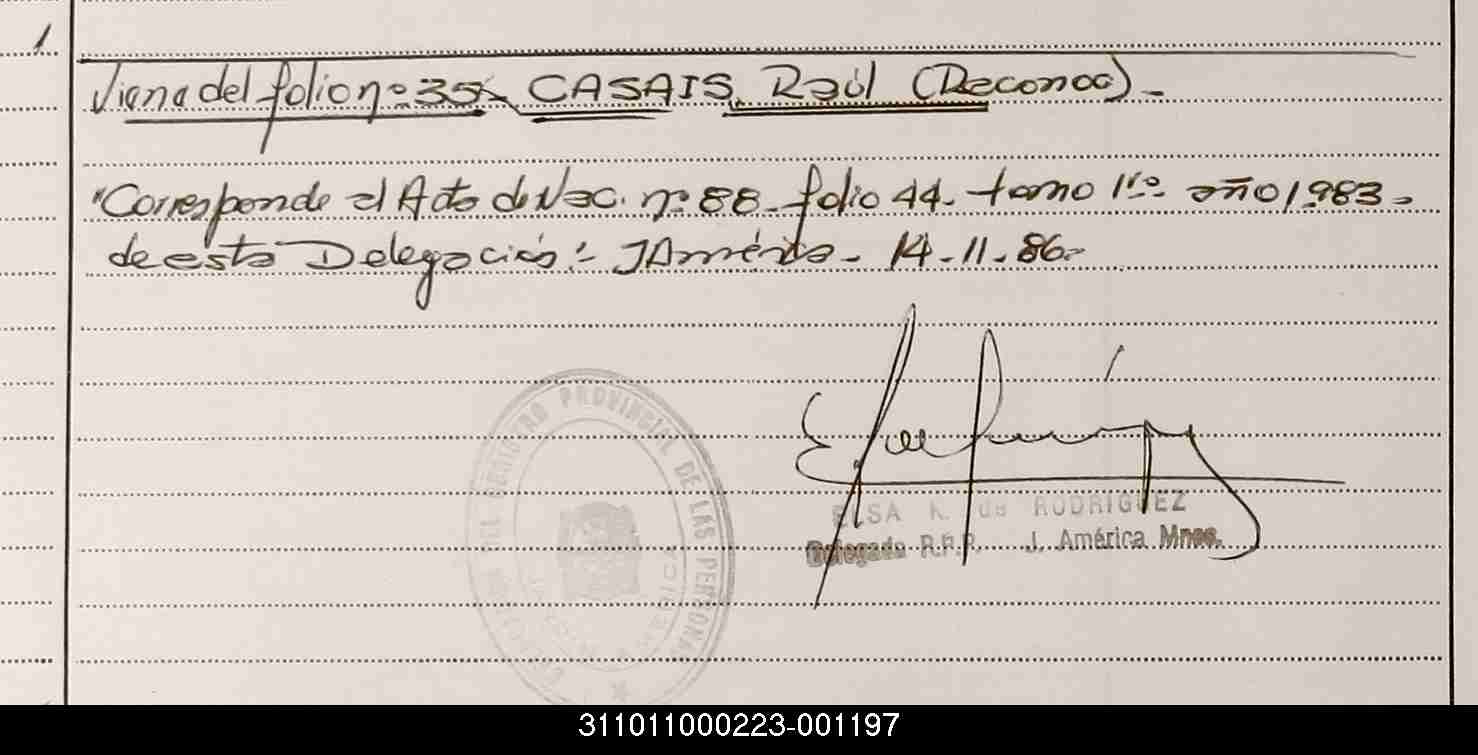 1
Viene del folio nº 35 - CASAIS, Raúl (Reconoc) -
"Corresponde al Acta de Nac. nº 88 - folio 44 - tomo 1ro. año 1983 -
de esta Delegación: - J América - 14-11-86 -
DEL REGISTRO PROVINCIAL DE LAS PERSONAS
AMERICA
ELSA K. de RODRIGUEZ
Delegada R.P.P. J. América Mnes.
311011000223-001197